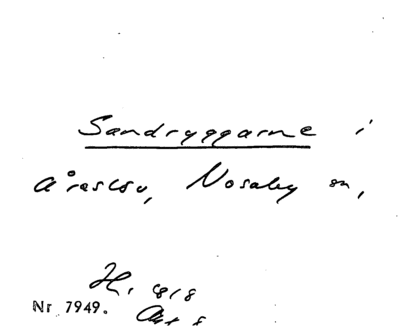 Sandryggarne i
Åraslöv, Nosaby sn,
H. 1818
Nr 7949. Akt 8